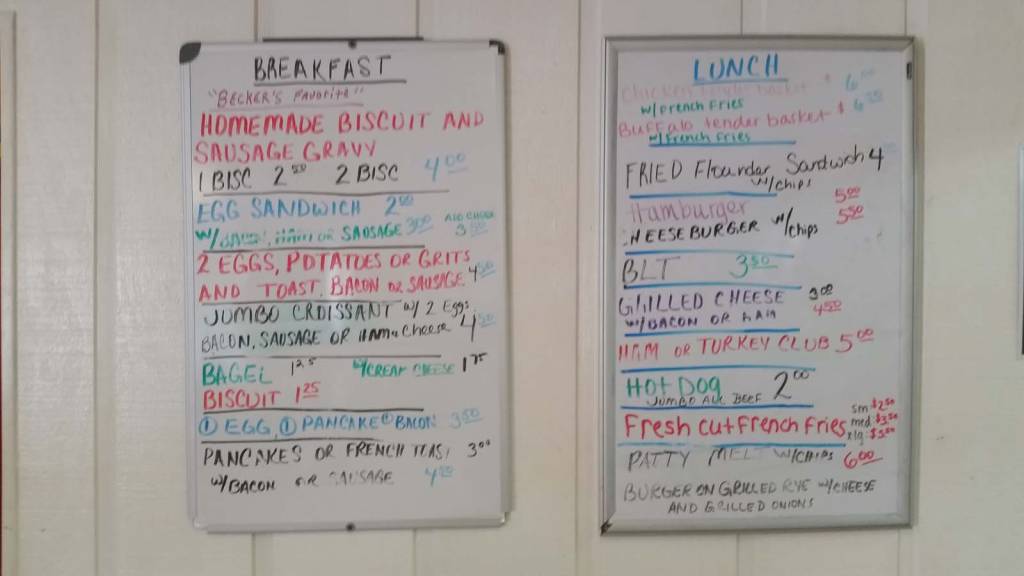 BREAKFAST
"BECKER'S FAVORITE"
HOMEMADE BISCUIT AND
SAUSAGE GRAVY
1 BISC 2.50 2 BISC 4.00
EGG SANDWICH 2.00
W/BACON, HAM OR SAUSAGE 3.00 ADD CHEESE
2 EGGS, POTATOES OR GRITS
AND TOAST, BACON OR SAUSAGE 4.50
JUMBO CROISSANT W/ 2 Eggs
BACON, SAUSAGE OR HAM & Cheese 4.50
BAGEL 1.25 W/CREAM CHEESE 1.75
BISCUIT 1.25
① EGG, ① PANCAKE ① BACON 3.50
PANCAKES OR FRENCH TOAST 3.00
W/BACON OR SAUSAGE
LUNCH
Chicken tender basket $ 6
W/French Fries
Buffalo tender basket $ 6.50
W/French Fries
FRIED Flounder Sandwich 4
W/CHIPS
Hamburger 5.00
CHEESEBURGER W/Chips 5.50
BLT 3.50
GRILLED CHEESE 3.00
W/BACON OR HAM 4.50
HAM OR TURKEY CLUB 5.00
HOT DOG 2.00
JUMBO ALL BEEF
Fresh cut French Fries sm $2.50
med $3.50
xlg $5.00
PATTY MELT W/CHIPS 6.00
BURGER ON GRILLED RYE W/CHEESE
AND GRILLED ONIONS